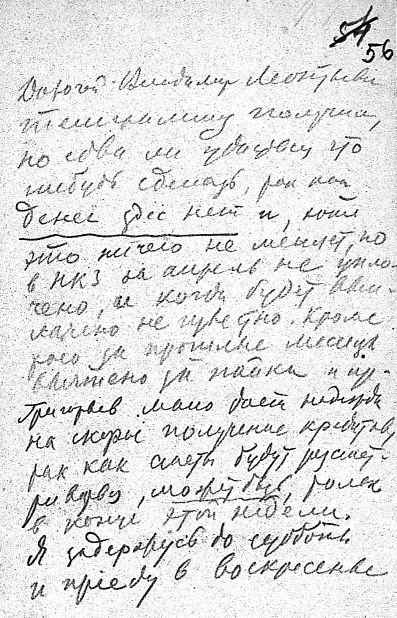 54
56
Дорогой Владимир Леонтьевич
телеграмму получил,
но едва ли удастся что
нибудь сделать, так как
денег здес нет и, хотя
это ничего не меняет, но
в НКЗ за апрель не упло-
чено, и когда будет вып-
лачено не известно. Кроме
того за прошлые месяцы
за пайки и
Григорьев мало дает надежды
на скорое получение кредитов,
так как сметы будут рассмат-
ривать, может быть, только
в конце этой недели.
Я задержусь до субботы
и приеду в воскресенье